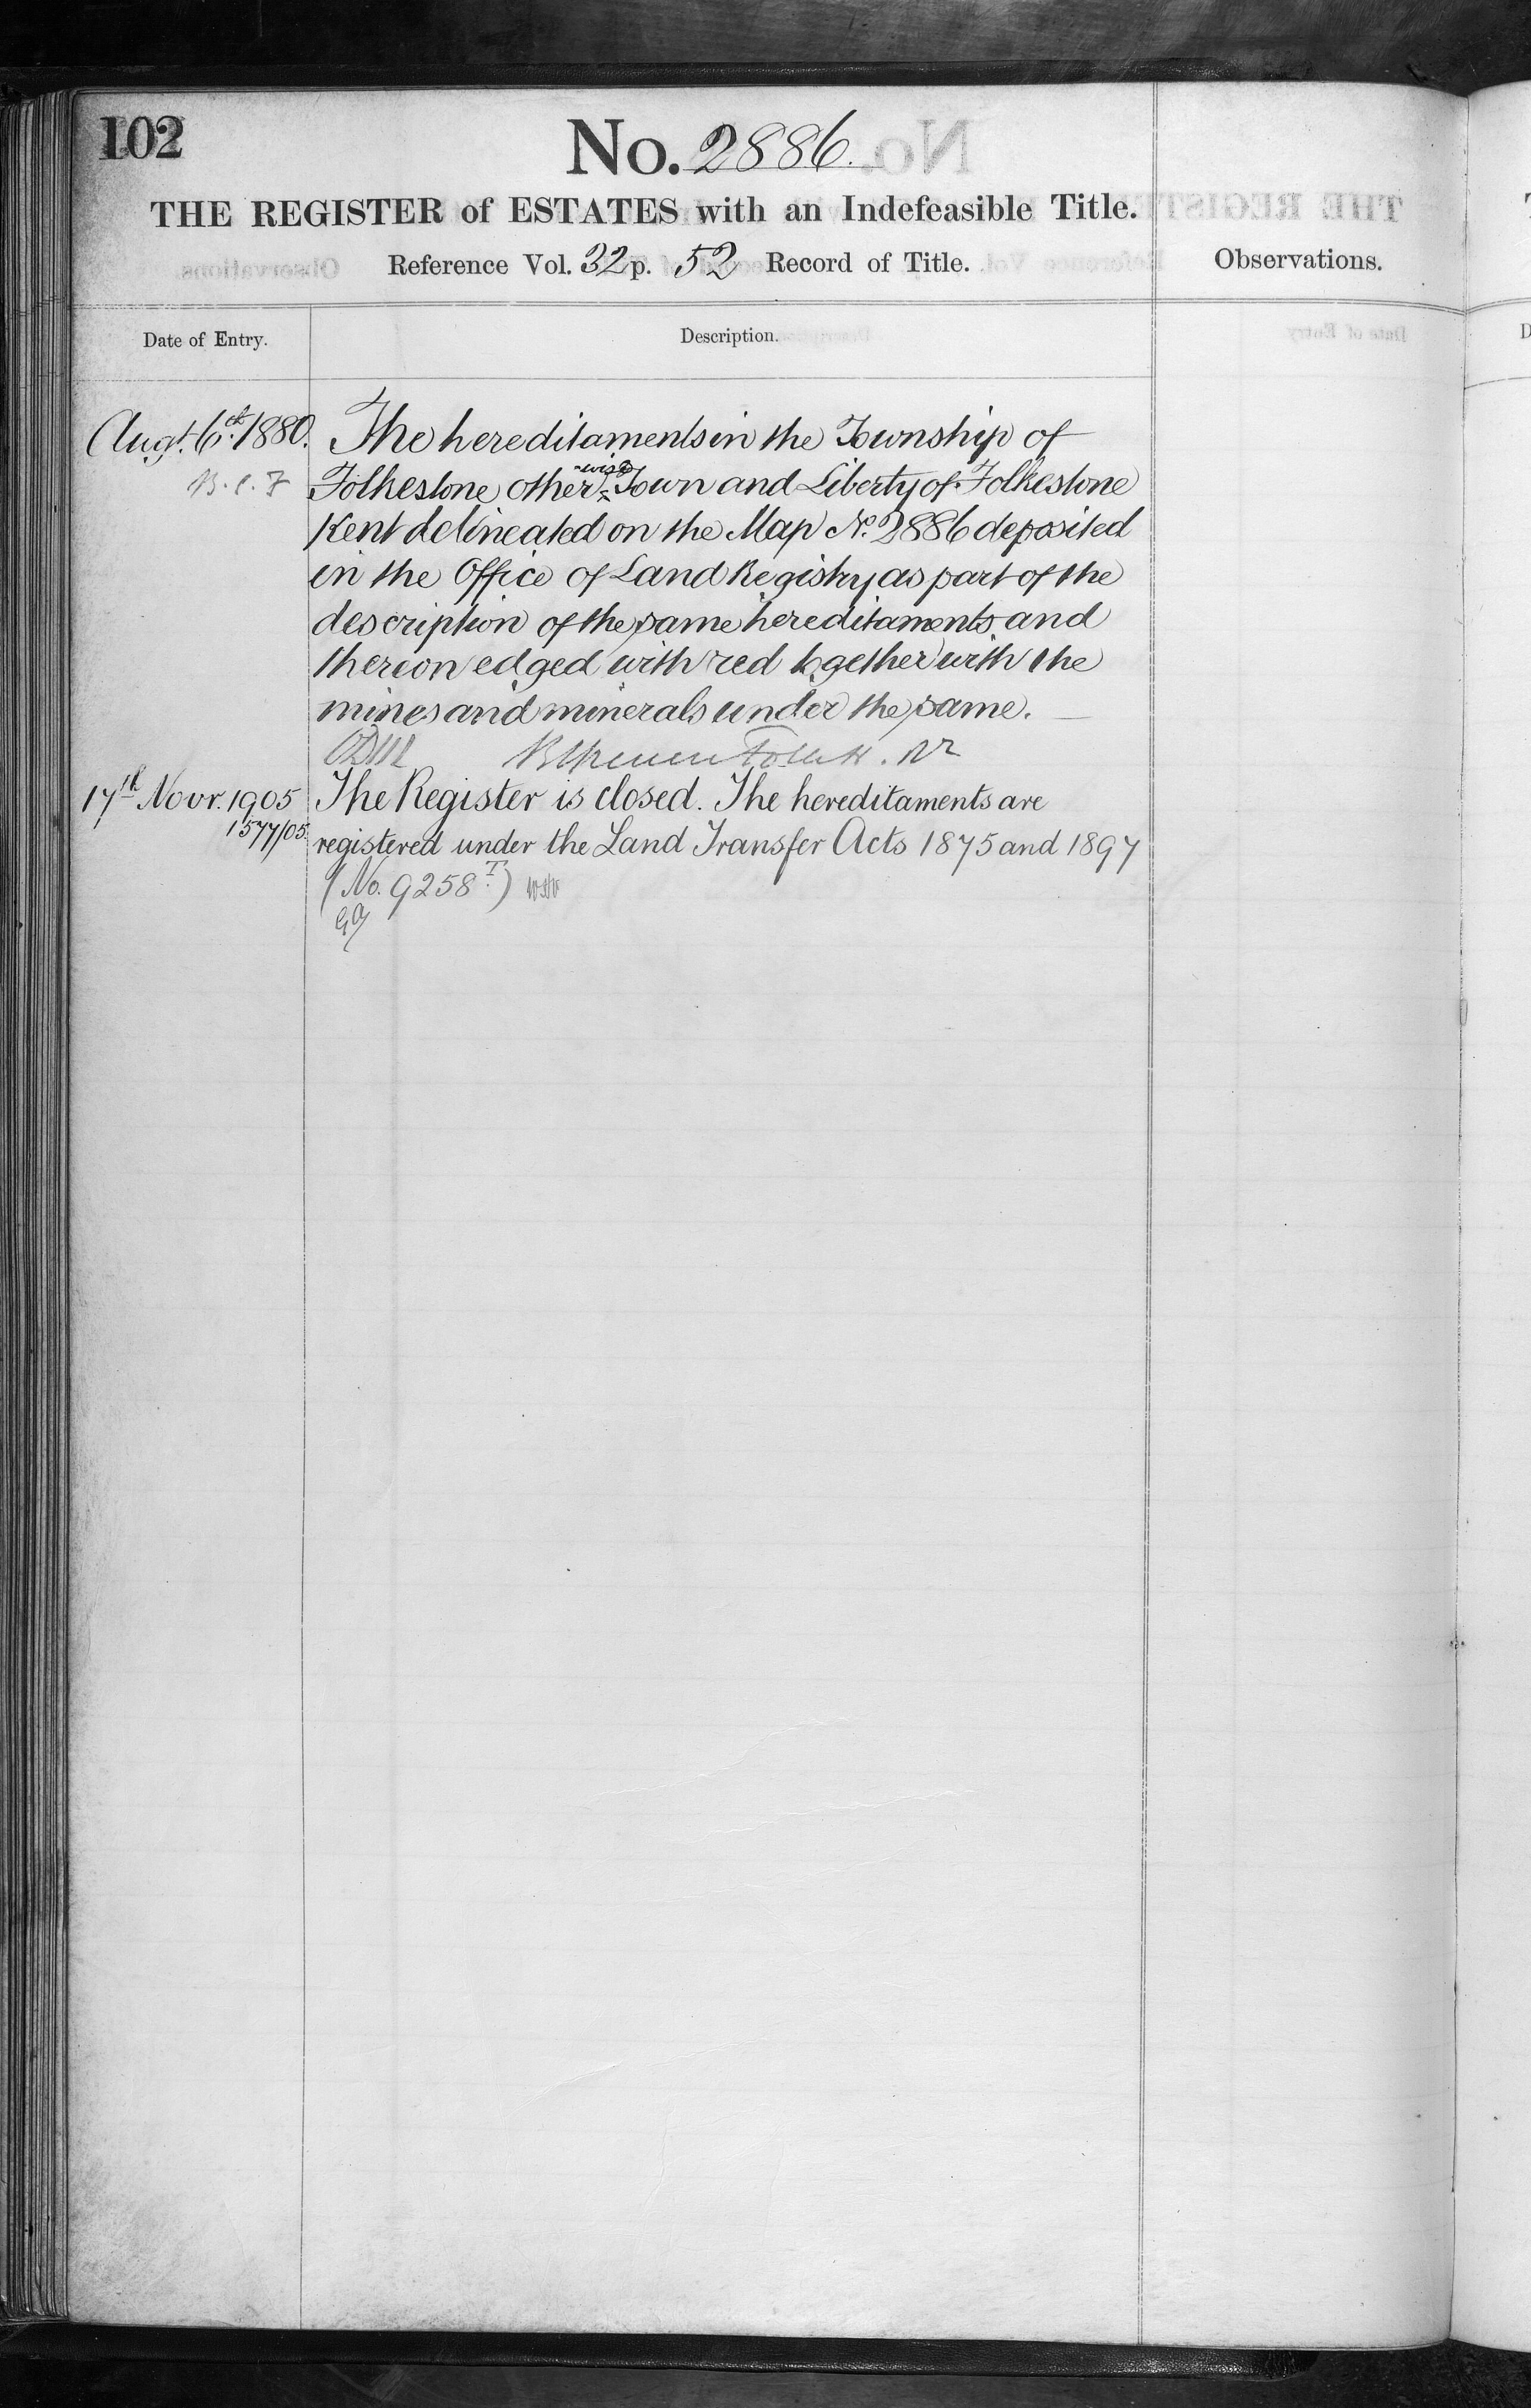 102
No. 2886.
THE REGISTER of ESTATES with an Indefeasible Title.
Reference Vol. 32 p. 52 Record of Title.
Observations.
Date of Entry.
Description.
Augt. 6th. 1880.
B. C. F
The hereditaments in the Township of
Folkestone other^wise Town and Liberty of Folkestone
Kent delineated on the Map No. 2886 deposited
in the Office of Land Registry as part of the
description of the same hereditaments and
thereon edged with red together with the
mines and minerals under the same.
17th Novr. 1905
1577/05.
The Register is closed. The hereditaments are
registered under the Land Transfer Acts 1875 and 1897
(No. 9258 T.)